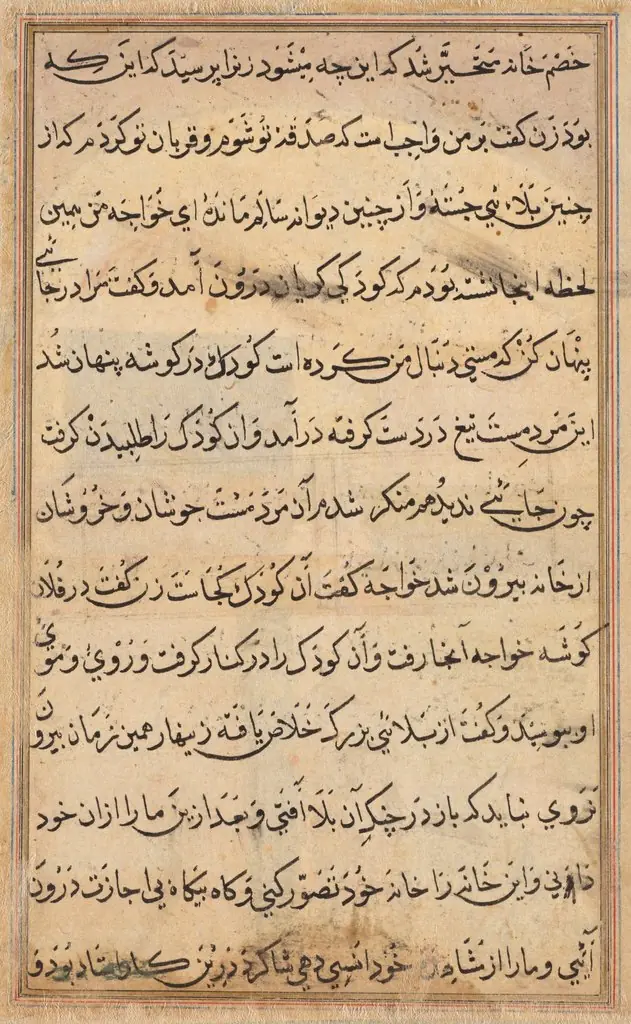 خصم خانه متحیّر شد که این چه میشود زنرا پرسید که این که
بود زن گفت بر من واجب است که صدقهٔ تو شوم و قربان تو کردم که از
چنین بلائی جستهٔ و از چنین دیوانه سالم ماندهٔ ای خواجه من همین
لحظه اینجا نشسته بودم که کودکی کریان درون آمد و گفت مرا در جائی
پنهان کن که مستی دنبال من کرده است کودک در کوشه پنهان شد
این مرد مست تیغ در دست گرفته درآمد و ان کودک را طلبیدن گرفت
چون جائی ندید هم منکر شدم آن مرد مست جوشان و خروشان
از خانه بیرون شد خواجه گفت آن کودک کجاست زن گفت در فلان
کوشه خواجه آنجا رفت و آن کودک را در کنار کرفت و روی و موی
او ببوسید و گفت از بلائی بزرک خلاص یافته زینهار همین زمان بیرون
نروی نباید که باز در چنک آن بلا افتی و بعد ازین ما را ازان خود
دانی و این خانه را خانه خود تصوّر کنی و کاه بیکاه بی اجازت درون
آئی و ما را از خود انسی دهی شاکرد درین کار استاد بود و